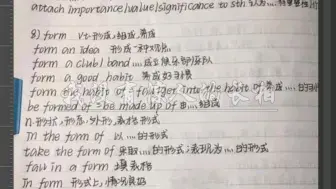 attach importance/value/significance to sth 认为....
8) form vt.形成,组成,养成
form an idea 形成一种观点
form a club/band....成立俱乐部/乐队
form a good habit 养成好习惯
form the habit of / fall/get into the habit of 养成....的习惯
be formed of = be made up of 由....组成
n.形状,形态,外形,表格,形式
In the form of 以....的形式
take the form of 采取....的形式;表现为....的形式
fill in a form 填表格
In form 形式上,情况良好